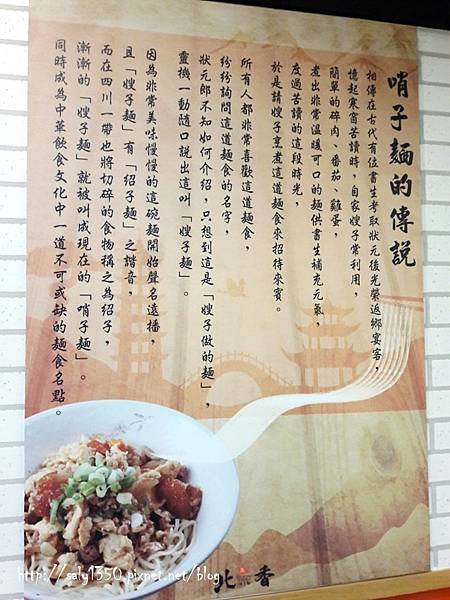 哨子麵的傳說
相傳在古代有位書生考取狀元後光榮返鄉宴客，
憶起寒窗苦讀時，自家嫂子常利用，
簡單的碎肉、番茄、雞蛋，
煮出非常溫暖可口的麵供書生補充元氣，
度過苦讀的這段時光，
於是請嫂子烹煮這道麵食來招待來賓。
所有人都非常喜歡這道麵食，
紛紛詢問這道麵食的名字，
狀元郎不知如何介紹，只想到這是「嫂子做的麵」，
靈機一動隨口說出這叫「嫂子麵」。
因為非常美味慢慢的這碗麵開始聲名遠播，
且「嫂子麵」有「紹子麵」之諧音，
而在四川一帶也將切碎的食物稱之為紹子，
漸漸的「嫂子麵」就被叫成現在的「哨子麵」。
同時成為中華飲食文化中一道不可或缺的麵食名點。
北香
http://saly1350.pixnet.net/blog